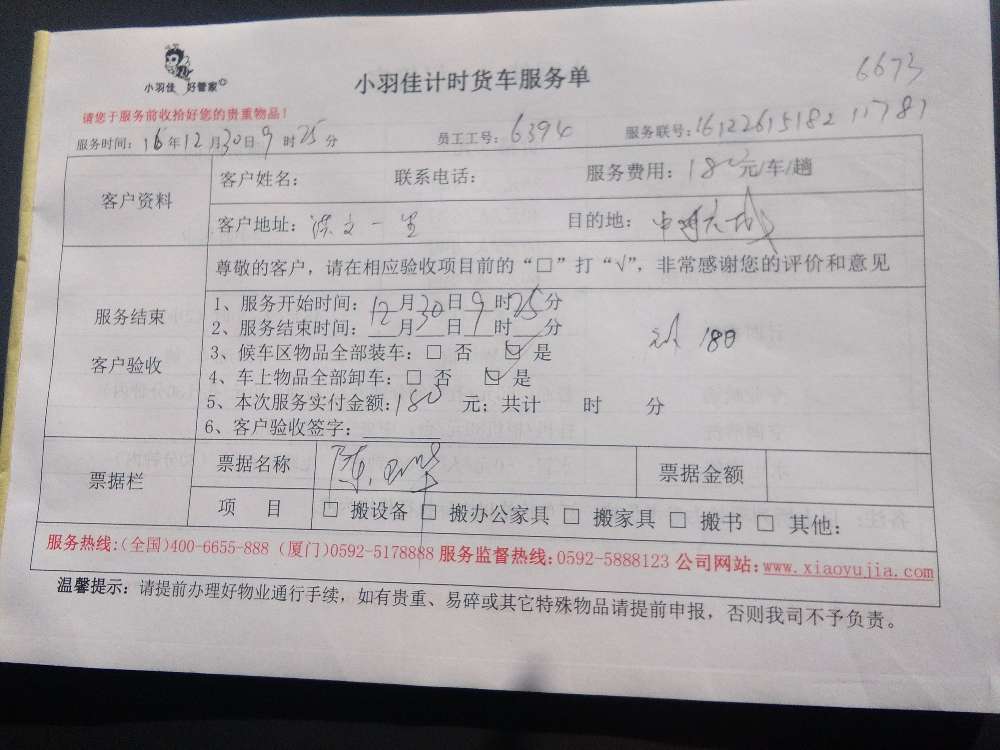 小羽佳 好管家
小羽佳计时货车服务单
6673
请您于服务前收拾好您的贵重物品!
服务时间: 16年12月30日9时25分 员工工号: 6394 服务联号: 16122615182 11781
客户资料
客户姓名: 联系电话: 服务费用: 180元/车/趟
客户地址: 洪文一里 目的地:
尊敬的客户，请在相应验收项目前的“□”打“√”，非常感谢您的评价和意见
服务结束
客户验收
1、服务开始时间: 12月30日9时25分
2、服务结束时间: 月 日 时 分
3、候车区物品全部装车: □ 否 ☑ 是
4、车上物品全部卸车: □ 否 ☑ 是
180
5、本次服务实付金额: 180 元; 共计 时 分
6、客户验收签字:
票据栏
票据名称 票据金额
项 目 □ 搬设备 □ 搬办公家具 □ 搬家具 □ 搬书 □ 其他:
服务热线:(全国)400-6655-888 (厦门)0592-5178888 服务监督热线:0592-5888123 公司网站:www.xiaoyujia.com
温馨提示: 请提前办理好物业通行手续，如有贵重、易碎或其它特殊物品请提前申报，否则我司不予负责。